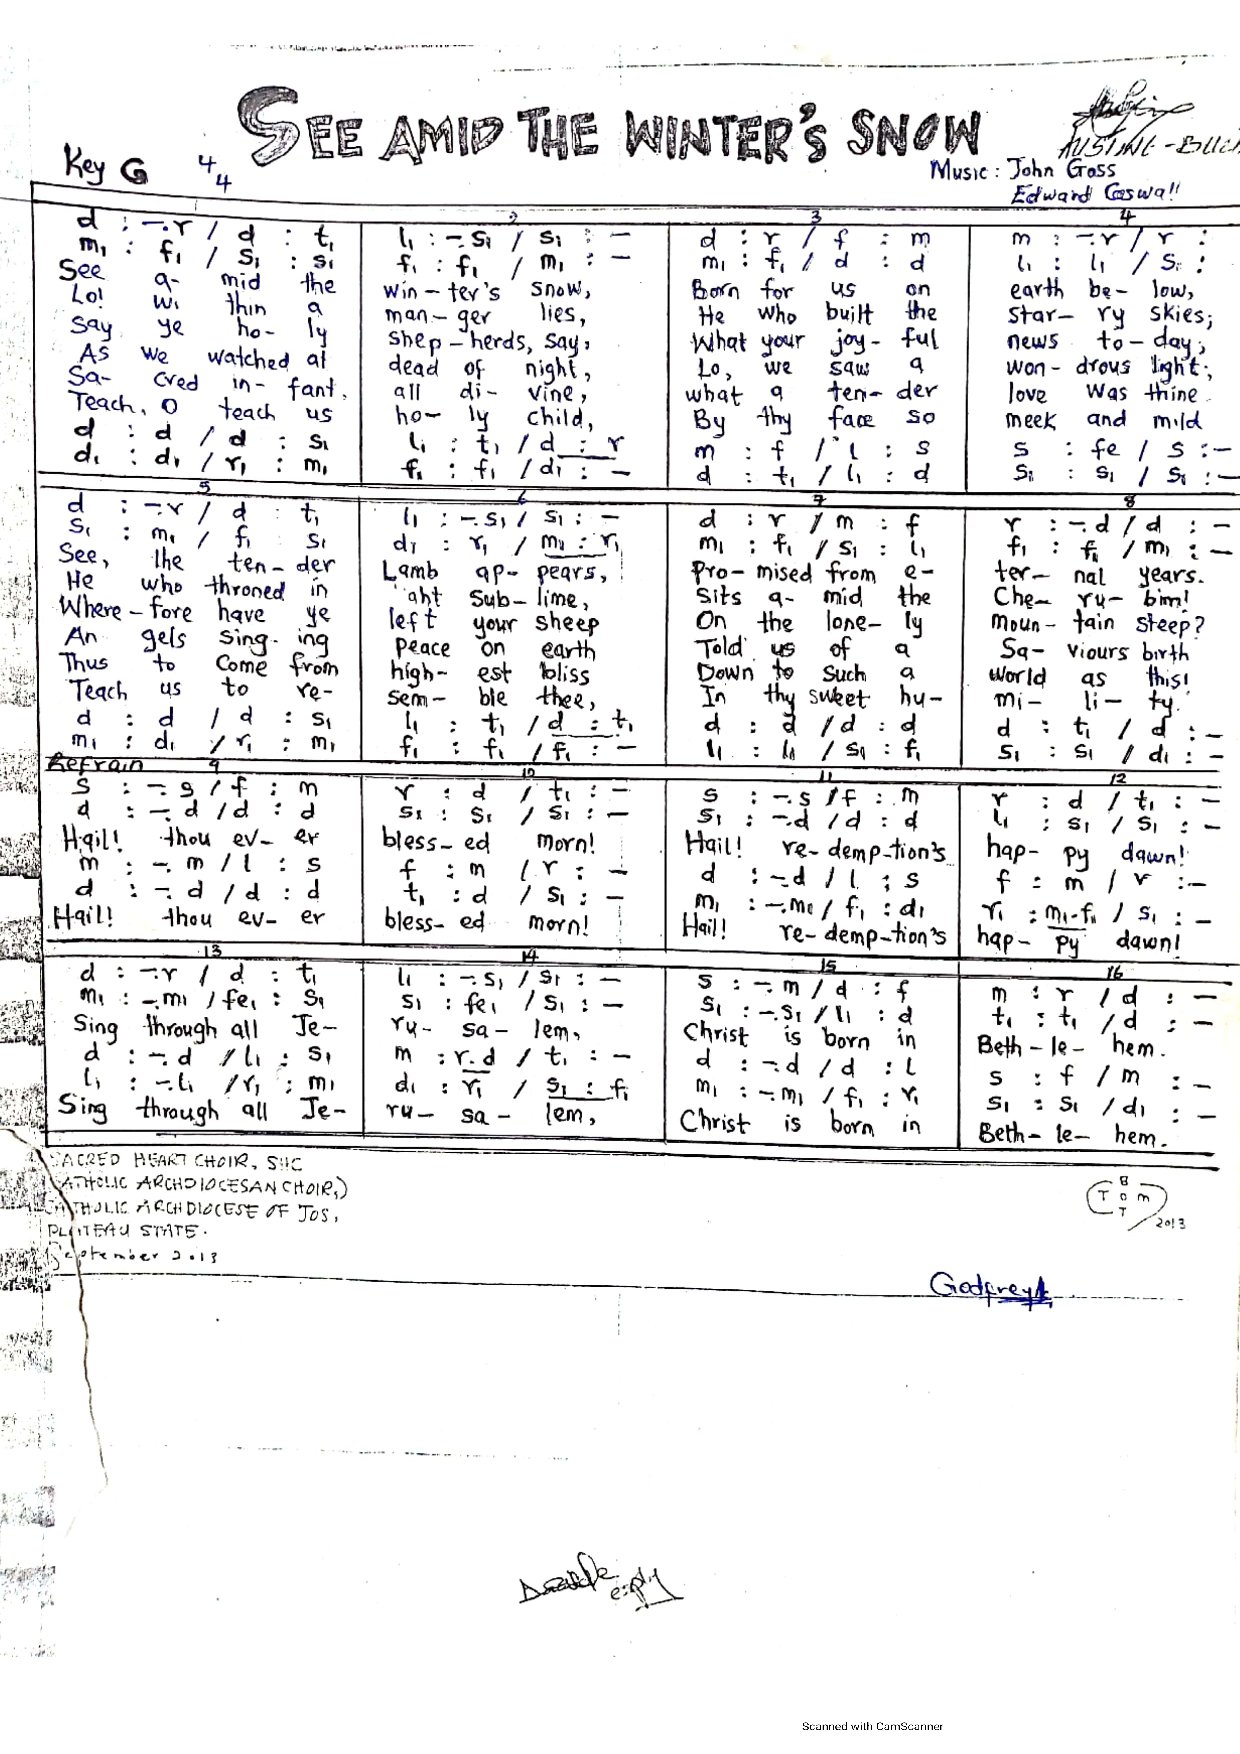 SEE AMID THE WINTER'S SNOW
AUSTINE-BUCH
Key G 4/4
Music: John Goss
Edward Caswall
1 2 3 4
d : -.r / d : t₁ l₁ : -.s₁ / s₁ : - d : r / f : m m : -.r / r :
m₁ : f₁ / s₁ : s₁ f₁ : f₁ / m₁ : - m₁ : f₁ / d : d l₁ : l₁ / s₁ :
See a- mid the win-ter's snow, Born for us on earth be-low,
Lo! wi thin a man-ger lies, He who built the star-ry skies;
Say ye ho-ly shep-herds, say, What your joy-ful news to-day;
As we watched at dead of night, Lo, we saw a won-drous light;
Sa- cred in-fant, all di-vine, what a ten-der love was thine
Teach, O teach us ho-ly child, By thy face so meek and mild
d : d / d : s₁ l₁ : t₁ / d : r m : f / l : s s : fe / s :-
d₁ : d₁ / r₁ : m₁ f₁ : f₁ / d₁ : - d : t₁ / l₁ : d s₁ : s₁ / s₁ :-
5 6 7 8
d : -.r / d : t₁ l₁ : -.s₁ / s₁ : - d : r / m : f r : -.d / d : -
s₁ : m₁ / f₁ s₁ d₁ : r₁ / m₁ : r₁ m₁ : f₁ / s₁ : l₁ f₁ : f₁ / m₁ : -
See, the ten-der Lamb ap-pears, Pro-mised from e- ter-nal years.
He who throned in 'aht Sub-lime, Sits a-mid the Che-ru-bim!
Where-fore have ye left your sheep On the lone-ly moun-tain steep?
An gels sing-ing Peace on earth Told us of a Sa-viours birth
Thus to come from high-est bliss Down to such a world as this!
Teach us to re- sem-ble thee, In thy sweet hu- mi-li-ty.
d : d / d : s₁ l₁ : t₁ / d : t₁ d : d / d : d d : t₁ / d : -
m₁ : d₁ / r₁ : m₁ f₁ : f₁ / f₁ : - l₁ : l₁ / s₁ : f₁ s₁ : s₁ / d₁ : -
Refrain 9 10 11 12
s : -.s / f : m r : d / t₁ : - s : -.s / f : m r : d / t₁ : -
d : -.d / d : d s₁ : s₁ / s₁ : - s₁ : -.d / d : d l₁ : s₁ / s₁ : -
Hail! thou ev-er bless-ed morn! Hail! re-demp-tion's hap-py dawn!
m : -.m / l : s f : m / r : - d : -.d / l : s f : m / r :-
d : -.d / d : d t₁ : d / s₁ : - m₁ : -.m₁ / f₁ : d₁ r₁ : m₁-f₁ / s₁ : -
Hail! thou ev-er bless-ed morn! Hail! re-demp-tion's hap-py dawn!
13 14 15 16
d : -.r / d : t₁ l₁ : -.s₁ / s₁ : - s : -.m / d : f m : r / d : -
m₁ : -.m₁ / fe₁ : s₁ s₁ : fe₁ / s₁ : - s₁ : -.s₁ / l₁ : d t₁ : t₁ / d : -
Sing through all Je- ru-sa-lem, Christ is born in Beth-le-hem.
d : -.d / l₁ : s₁ m : r.d / t₁ : - d : -.d / d : l s : f / m : -
l₁ : -.l₁ / r₁ : m₁ d₁ : r₁ / s₁ : f₁ m₁ : -.m₁ / f₁ : r₁ s₁ : s₁ / d₁ : -
Sing through all Je- ru-sa-lem, Christ is born in Beth-le-hem.
SACRED HEART CHOIR, SHC
CATHOLIC ARCHDIOCESAN CHOIR,)
CATHOLIC ARCHDIOCESE OF JOS,
PLATEAU STATE.
September 2013
B
T O M
T
2013
Godfrey
Scanned with CamScanner